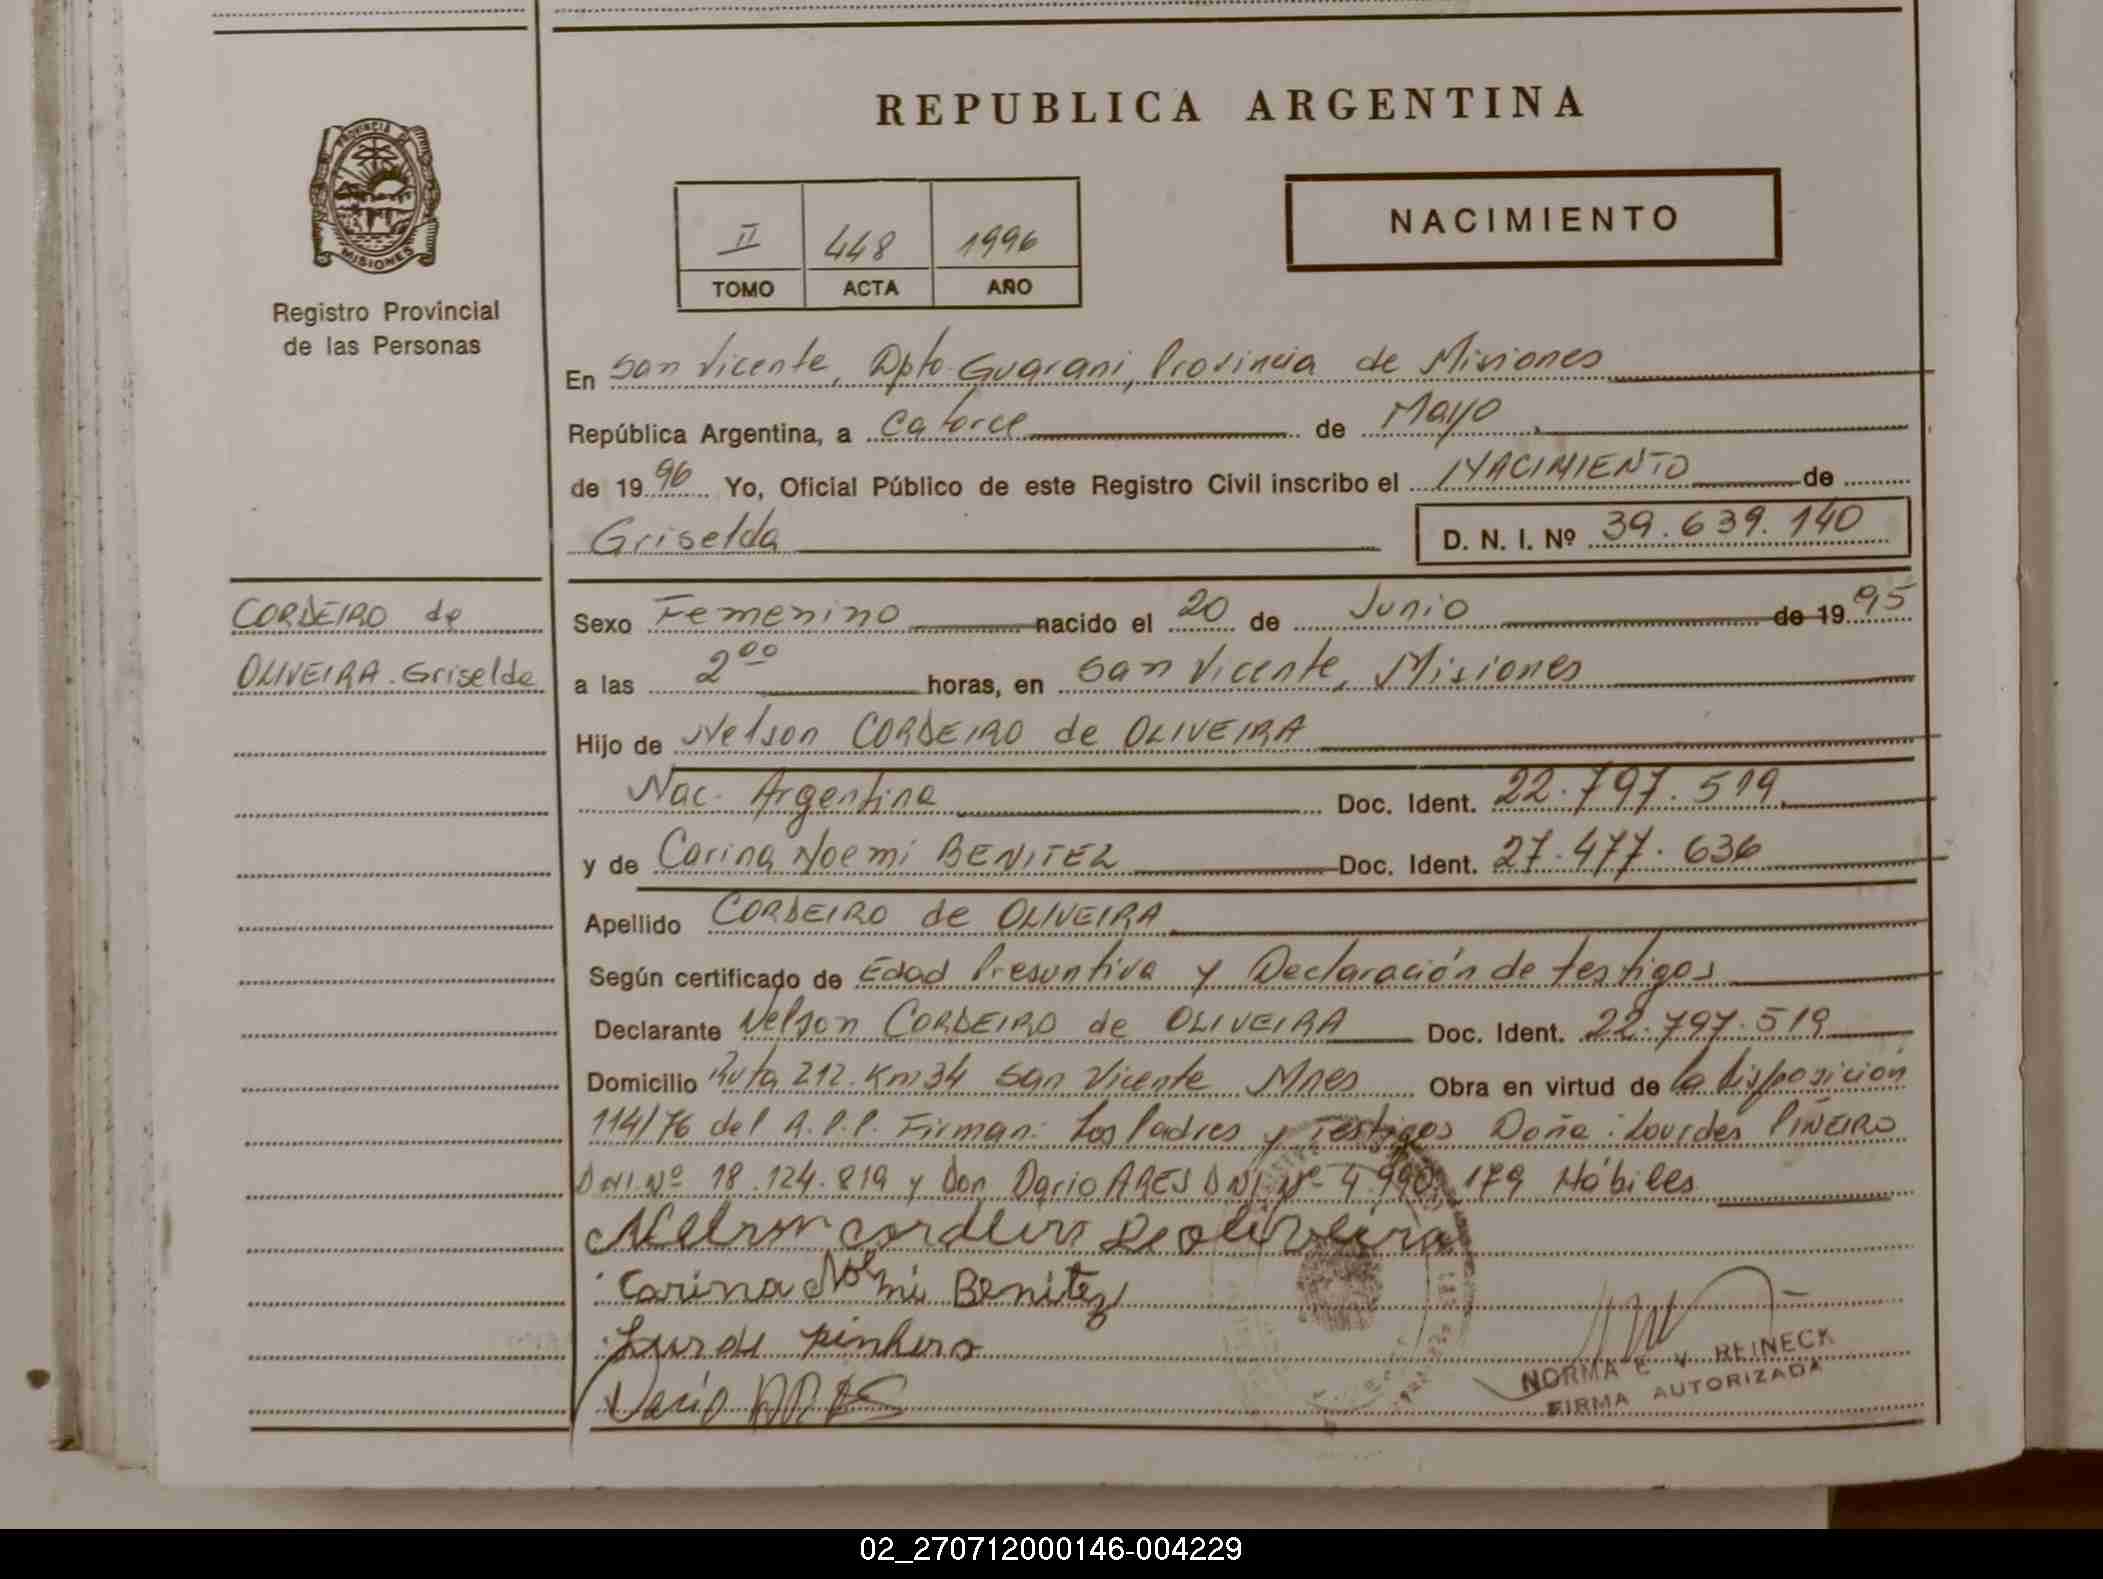 REPUBLICA ARGENTINA
PROVINCIA DE
MISIONES
Registro Provincial
de las Personas
NACIMIENTO
II 448 1996
TOMO ACTA AÑO
En San Vicente, Dpto Guarani, Provincia de Misiones
República Argentina, a Catorce de Mayo
de 1996 Yo, Oficial Público de este Registro Civil inscribo el NACIMIENTO de
Griselda D. N. I. Nº 39.639.140
CORDEIRO de
OLIVEIRA. Griselda
Sexo Femenino nacido el 20 de Junio de 1995
a las 2 00 horas, en San Vicente, Misiones
Hijo de Nelson CORDEIRO de OLIVEIRA
Nac. Argentina Doc. Ident. 22.797.519
y de Carina Noemi BENITEZ Doc. Ident. 27.477.636
Apellido CORDEIRO de OLIVEIRA
Según certificado de Edad Presuntiva y Declaración de testigos
Declarante Nelson CORDEIRO de OLIVEIRA Doc. Ident. 22.797.519
Domicilio Ruta 212. Km 34 San Vicente Mnes Obra en virtud de la disposición
114/76 del R.P.P. Firman: Los Padres y Testigos Doña: Lourdes PIÑEIRO
DNI. Nº 18.124.819 y Don Dario ARES DNI Nº 4.990.179 Hábiles
Nelson cordeiro de oliveira
Carina Noemi Benitez
Lurde pinhero
Dario ARES
NORMA E. V. REINECK
FIRMA AUTORIZADA
02_270712000146-004229